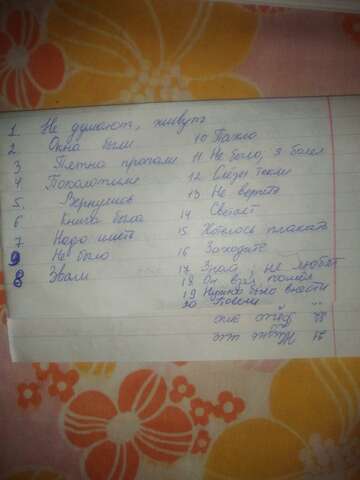 1 Не думают, живут
2 Окна были
3 Пятна пропали
4 Поколотили
5. Вернулись
6 Книга была
7 Надо иметь
9 Не было
8 Звали
10 Пахло
11 Не было, я болел
12 Слёзы текли
13 Не верить
14 Светает
15 Хотелось плакать
16 Заходите
17 Знал, не любят
18 Он взял, пошёл
19 Нужно было внести
20
21
22